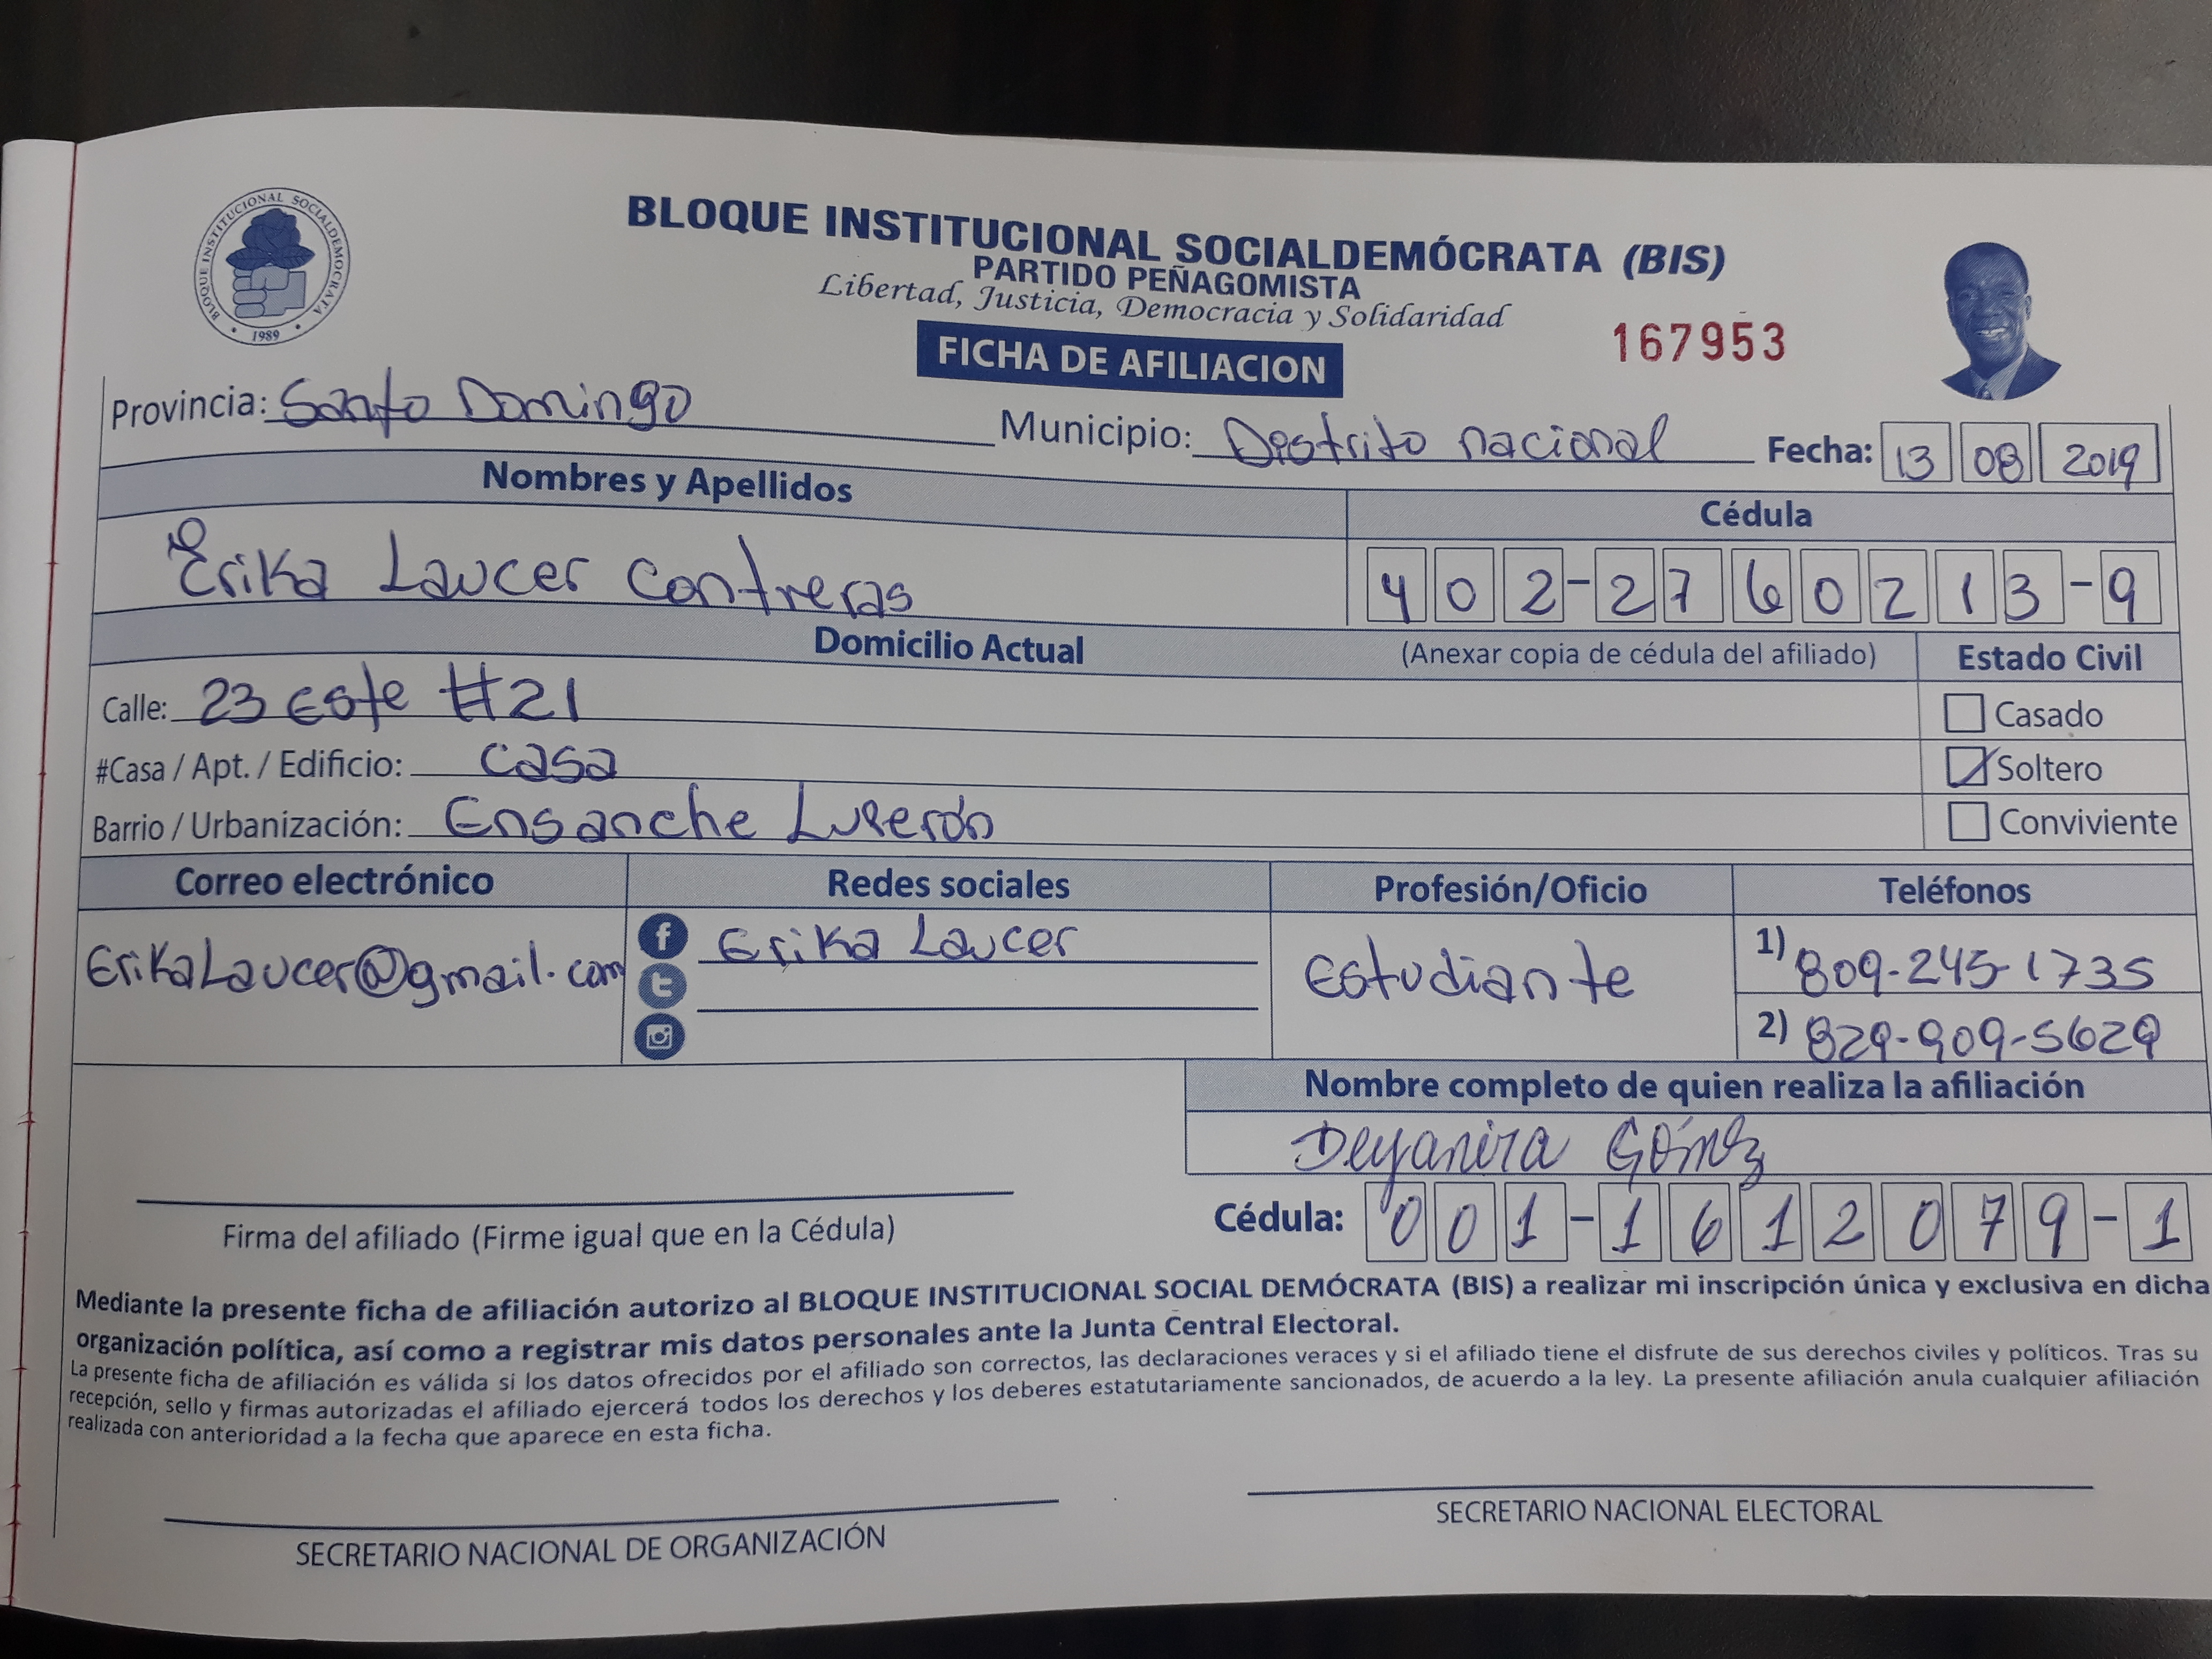 BLOQUE INSTITUCIONAL SOCIALDEMOCRATA
1989
BLOQUE INSTITUCIONAL SOCIALDEMÓCRATA (BIS)
PARTIDO PEÑAGOMISTA
Libertad, Justicia, Democracia y Solidaridad
FICHA DE AFILIACION
167953
Provincia: Santo Domingo Municipio: Distrito nacional Fecha: 13 08 2019
Nombres y Apellidos Cédula
Erika Laucer Contreras 402-2760213-9
Domicilio Actual (Anexar copia de cédula del afiliado) Estado Civil
Calle: 23 este #21 Casado
#Casa / Apt. / Edificio: casa Soltero
Barrio / Urbanización: Ensanche Luperón Conviviente
Correo electrónico Redes sociales Profesión/Oficio Teléfonos
ErikaLaucer@gmail.com Erika Laucer Estudiante 1) 809-245-1735
2) 829-909-5629
Nombre completo de quien realiza la afiliación
Deyanira Gómez
Firma del afiliado (Firme igual que en la Cédula) Cédula: 001-1612079-1
Mediante la presente ficha de afiliación autorizo al BLOQUE INSTITUCIONAL SOCIAL DEMÓCRATA (BIS) a realizar mi inscripción única y exclusiva en dicha
organización política, así como a registrar mis datos personales ante la Junta Central Electoral.
La presente ficha de afiliación es válida si los datos ofrecidos por el afiliado son correctos, las declaraciones veraces y si el afiliado tiene el disfrute de sus derechos civiles y políticos. Tras su
recepción, sello y firmas autorizadas el afiliado ejercerá todos los derechos y los deberes estatutariamente sancionados, de acuerdo a la ley. La presente afiliación anula cualquier afiliación
realizada con anterioridad a la fecha que aparece en esta ficha.
SECRETARIO NACIONAL DE ORGANIZACIÓN SECRETARIO NACIONAL ELECTORAL